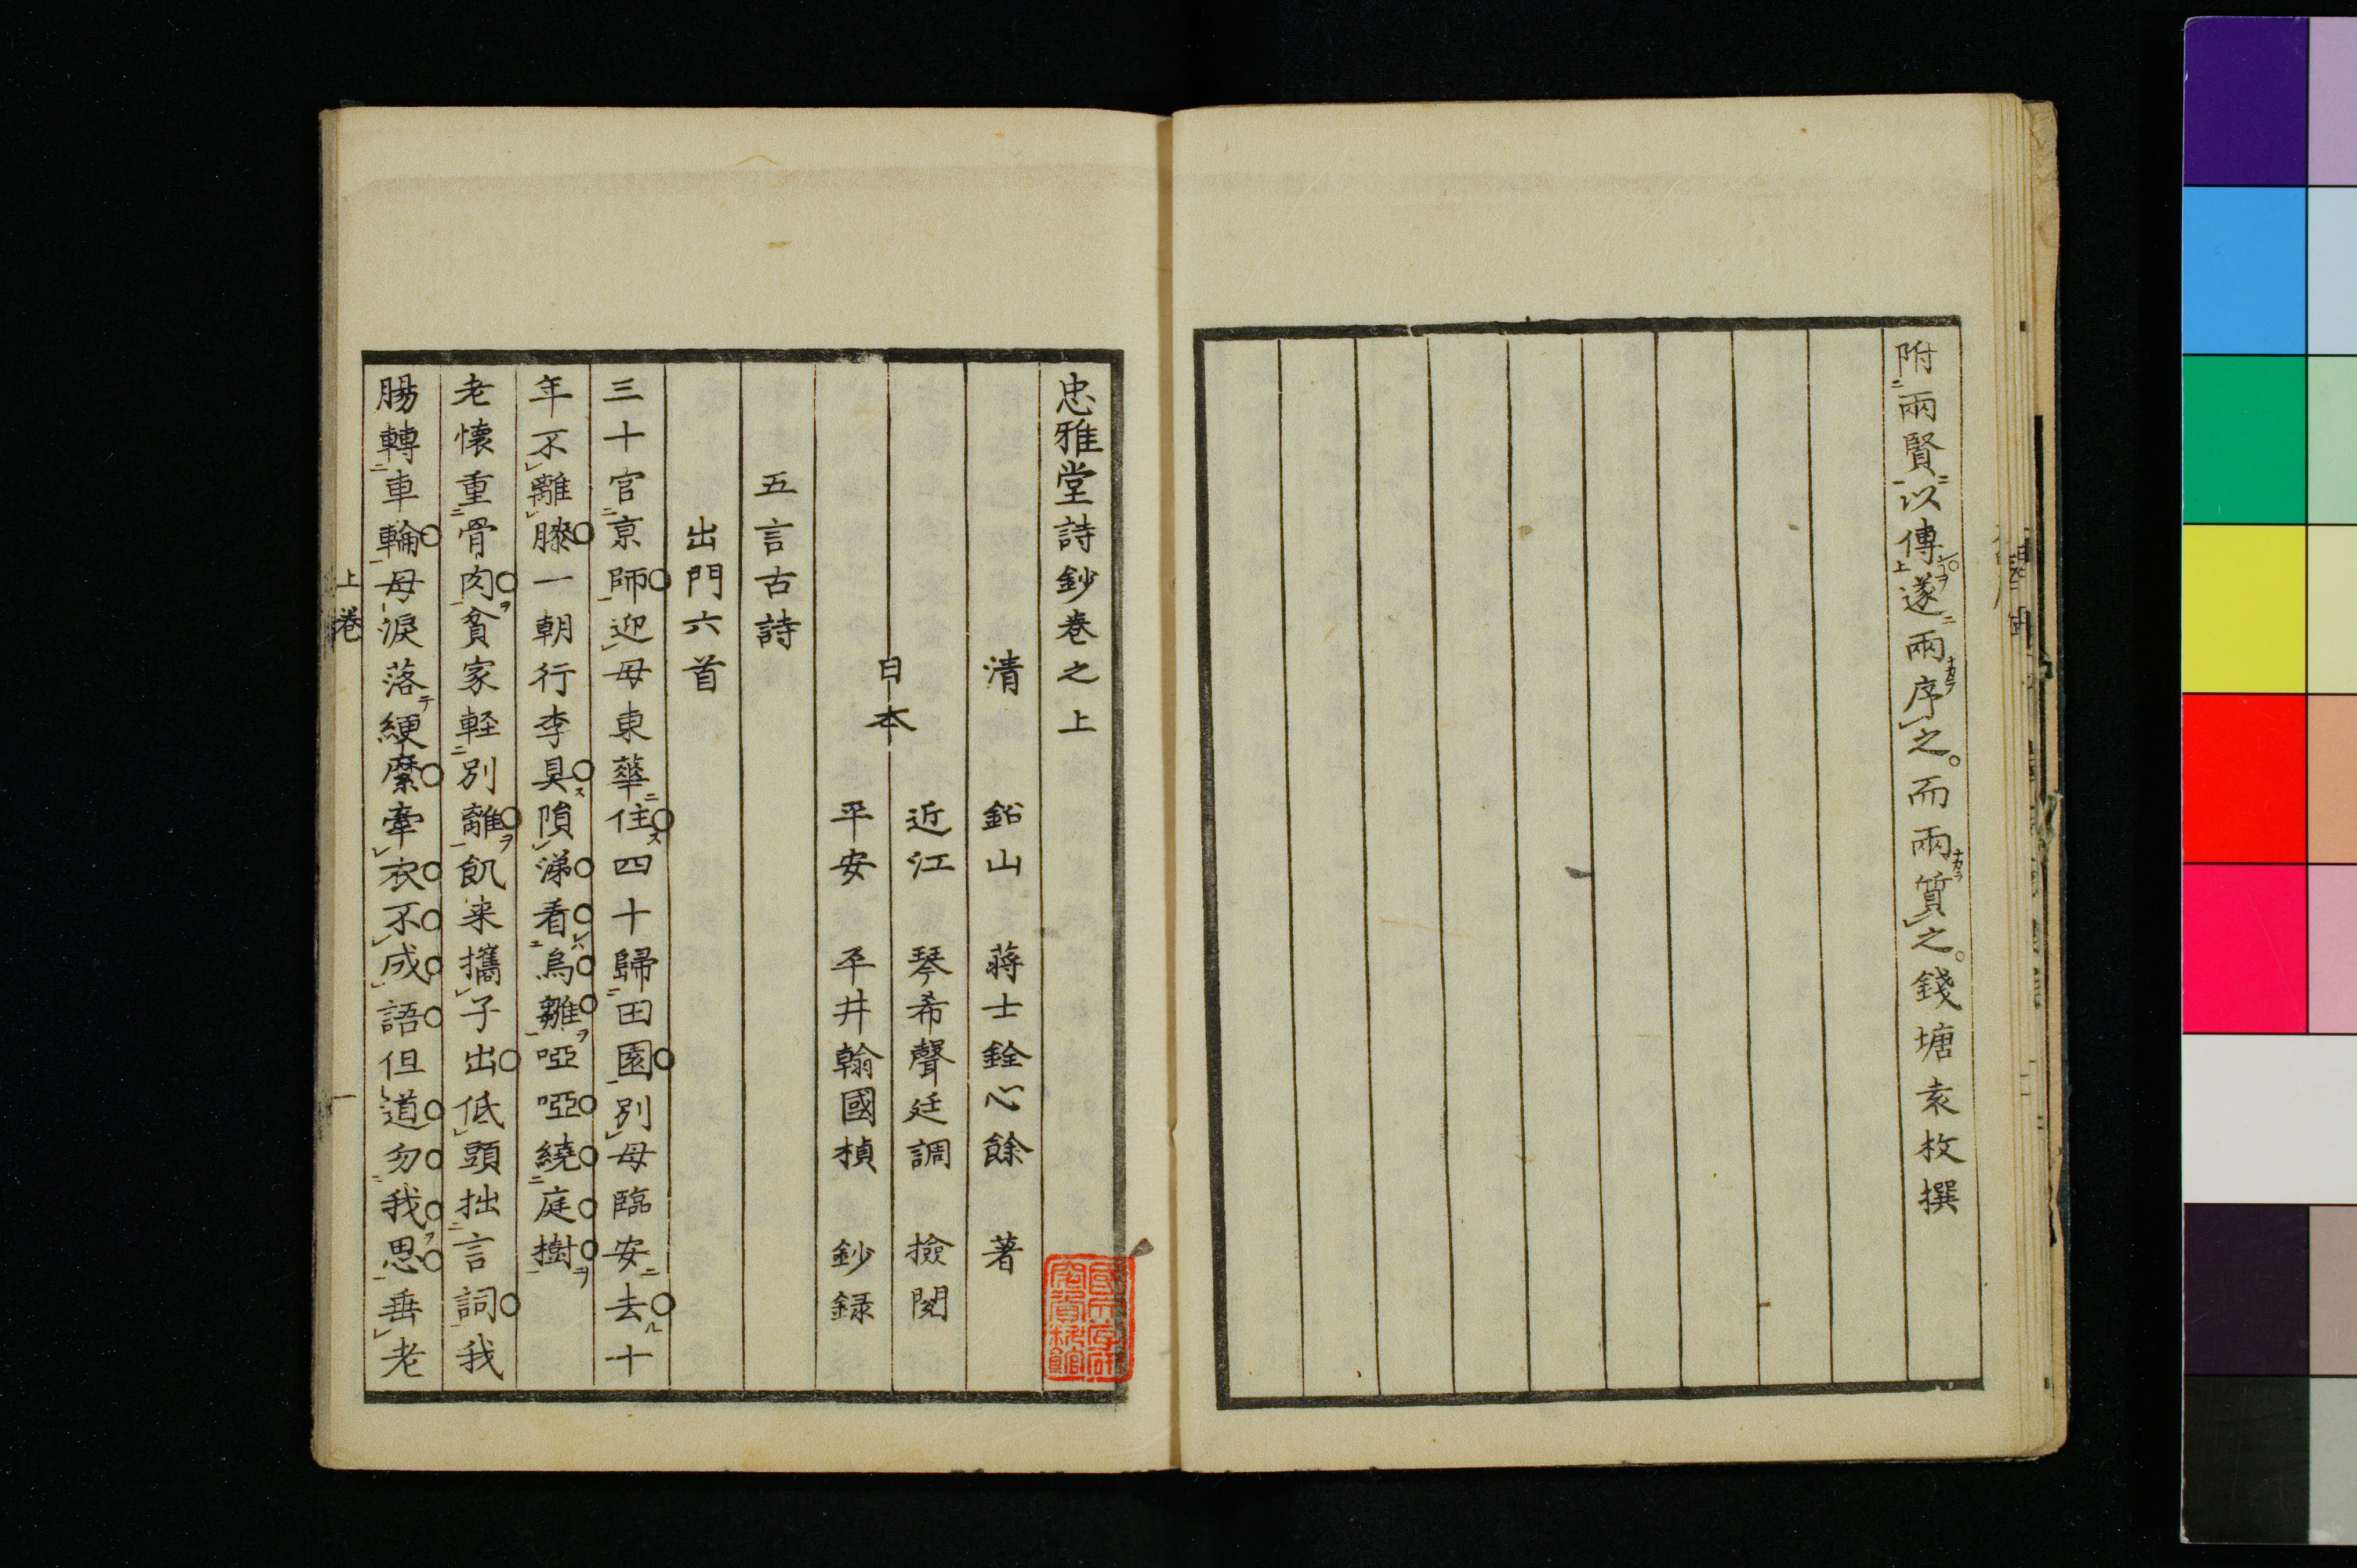 附兩賢以傳遂兩序之。而兩質之。錢塘袁枚撰
忠雅堂詩鈔卷之上
清 鉛山 蔣士銓心餘 著
日本 近江 琴希聲廷調 撿閲
平安 平井翰國楨 鈔録
五言古詩
出門六首
三十官京師迎母東華住四十歸田園別母臨安去十
年不離膝一朝行李具隕涕看烏雛啞啞繞庭樹
老懷重骨肉貧家軽別離飢来攜子出低頭拙言詞我
腸轉車輪母淚落綆縻牽衣不成語但道勿我思垂老
上卷
一